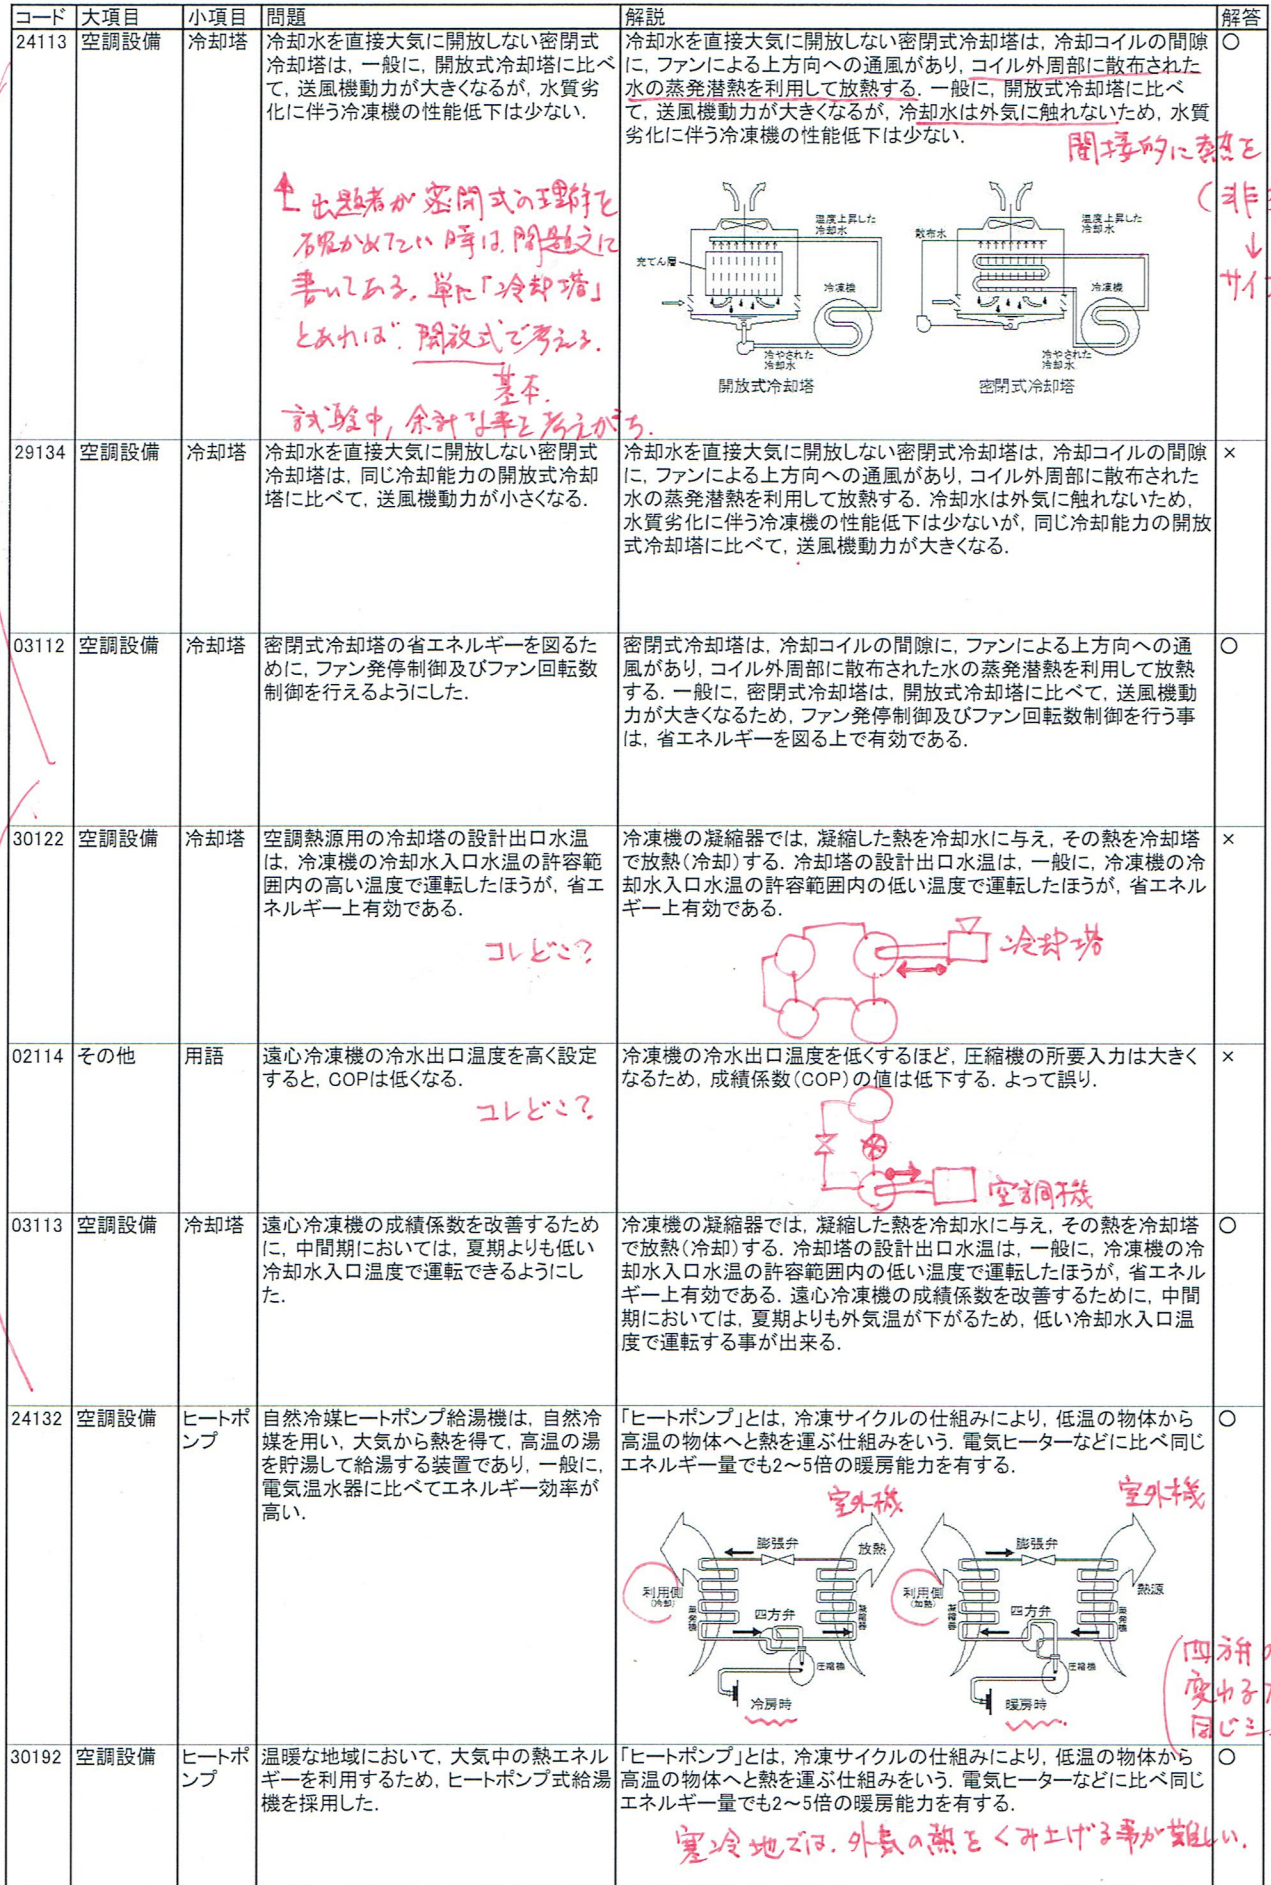 コード 大項目 小項目 問題 解説 解答
24113 空調設備 冷却塔
冷却水を直接大気に開放しない密閉式
冷却塔は, 一般に, 開放式冷却塔に比べ
て, 送風機動力が大きくなるが, 水質劣
化に伴う冷凍機の性能低下は少ない.
↑ 出題者が密閉式の理解を
確かめたい時は, 問題文に
書いてある. 単に「冷却塔」
とあれば. 開放式で考える.
基本.
試験中, 余計な事を考えがち.
冷却水を直接大気に開放しない密閉式冷却塔は, 冷却コイルの間隙
に, ファンによる上方向への通風があり, コイル外周部に散布された
水の蒸発潜熱を利用して放熱する. 一般に, 開放式冷却塔に比べ
て, 送風機動力が大きくなるが, 冷却水は外気に触れないため, 水質
劣化に伴う冷凍機の性能低下は少ない.
○
間接的に熱を
(非
↓
サイ
温度上昇した
冷却水
充てん層
冷凍機
冷やされた
冷却水
開放式冷却塔
散布水
温度上昇した
冷却水
冷凍機
冷やされた
冷却水
密閉式冷却塔
29134 空調設備 冷却塔
冷却水を直接大気に開放しない密閉式
冷却塔は, 同じ冷却能力の開放式冷却
塔に比べて, 送風機動力が小さくなる.
冷却水を直接大気に開放しない密閉式冷却塔は, 冷却コイルの間隙
に, ファンによる上方向への通風があり, コイル外周部に散布された
水の蒸発潜熱を利用して放熱する. 冷却水は外気に触れないため,
水質劣化に伴う冷凍機の性能低下は少ないが, 同じ冷却能力の開放
式冷却塔に比べて, 送風機動力が大きくなる.
×
03112 空調設備 冷却塔
密閉式冷却塔の省エネルギーを図るた
めに, ファン発停制御及びファン回転数
制御を行えるようにした.
密閉式冷却塔は, 冷却コイルの間隙に, ファンによる上方向への通
風があり, コイル外周部に散布された水の蒸発潜熱を利用して放熱
する. 一般に, 密閉式冷却塔は, 開放式冷却塔に比べて, 送風機動
力が大きくなるため, ファン発停制御及びファン回転数制御を行う事
は, 省エネルギーを図る上で有効である.
○
30122 空調設備 冷却塔
空調熱源用の冷却塔の設計出口水温
は, 冷凍機の冷却水入口水温の許容範
囲内の高い温度で運転したほうが, 省エ
ネルギー上有効である.
コレどこ?
冷凍機の凝縮器では, 凝縮した熱を冷却水に与え, その熱を冷却塔
で放熱(冷却)する. 冷却塔の設計出口水温は, 一般に, 冷凍機の冷
却水入口水温の許容範囲内の低い温度で運転したほうが, 省エネル
ギー上有効である.
×
冷却塔
02114 その他 用語
遠心冷凍機の冷水出口温度を高く設定
すると, COPは低くなる.
コレどこ?
冷凍機の冷水出口温度を低くするほど, 圧縮機の所要入力は大きく
なるため, 成績係数(COP)の値は低下する. よって誤り.
×
空調機
03113 空調設備 冷却塔
遠心冷凍機の成績係数を改善するため
に, 中間期においては, 夏期よりも低い
冷却水入口温度で運転できるようにし
た.
冷凍機の凝縮器では, 凝縮した熱を冷却水に与え, その熱を冷却塔
で放熱(冷却)する. 冷却塔の設計出口水温は, 一般に, 冷凍機の冷
却水入口水温の許容範囲内の低い温度で運転したほうが, 省エネル
ギー上有効である. 遠心冷凍機の成績係数を改善するために, 中間
期においては, 夏期よりも外気温が下がるため, 低い冷却水入口温
度で運転する事が出来る.
○
24132 空調設備 ヒートポ
ンプ
自然冷媒ヒートポンプ給湯機は, 自然冷
媒を用い, 大気から熱を得て, 高温の湯
を貯湯して給湯する装置であり, 一般に,
電気温水器に比べてエネルギー効率が
高い.
「ヒートポンプ」とは, 冷凍サイクルの仕組みにより, 低温の物体から
高温の物体へと熱を運ぶ仕組みをいう. 電気ヒーターなどに比べ同じ
エネルギー量でも2～5倍の暖房能力を有する.
○
室外機
膨張弁
放熱
利用側
(冷却)
蒸発機
四方弁
凝縮器
圧縮機
冷房時
室外機
膨張弁
熱源
利用側
(加熱)
凝縮器
四方弁
蒸発機
圧縮機
暖房時
四方弁の
変わる
同じ
30192 空調設備 ヒートポ
ンプ
温暖な地域において, 大気中の熱エネル
ギーを利用するため, ヒートポンプ式給湯
機を採用した.
「ヒートポンプ」とは, 冷凍サイクルの仕組みにより, 低温の物体から
高温の物体へと熱を運ぶ仕組みをいう. 電気ヒーターなどに比べ同じ
エネルギー量でも2～5倍の暖房能力を有する.
○
寒冷地では, 外気の熱をくみ上げる事が難しい.